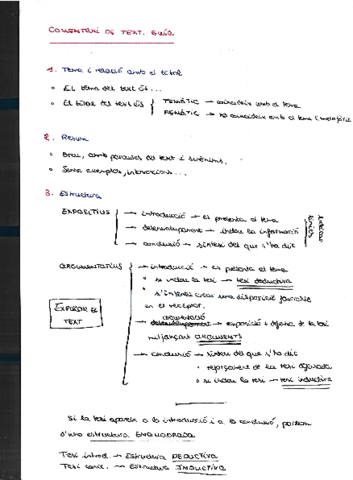 COMENTARI DE TEXT. GUIA
1. Tema i relació amb el títol
• El tema del text és...
• El títol del text és { TEMÀTIC → coincideix amb el tema
REMÀTIC → no coincideix amb el tema
2. Resum
• Breu, amb paraules del text i sinònims.
• Sense exemples,
3. Estructura
EXPOSITIUS
→ introducció → es presenta el tema
→ desenvolupament → indica la informació
→ conclusió → síntesi del que s'ha dit
ARGUMENTATIUS
→ introducció → es presenta el tema
• si indica la tesi → tesi deductiva
• s'intenta crear una disposició favorable
en el receptor.
EXPLICAR EL
TEXT
→ exposició i defensa de la tesi
mitjançant ARGUMENTS
→ conclusió → síntesi del que s'ha dit
• de la tesi
• si indica la tesi → tesi inductiva
Si la tesi apareix a la introducció i a la conclusió, parlem
d'una estructura ENQUADRADA
Tesi introd. → Estructura DEDUCTIVA
Tesi concl. → Estructura INDUCTIVA